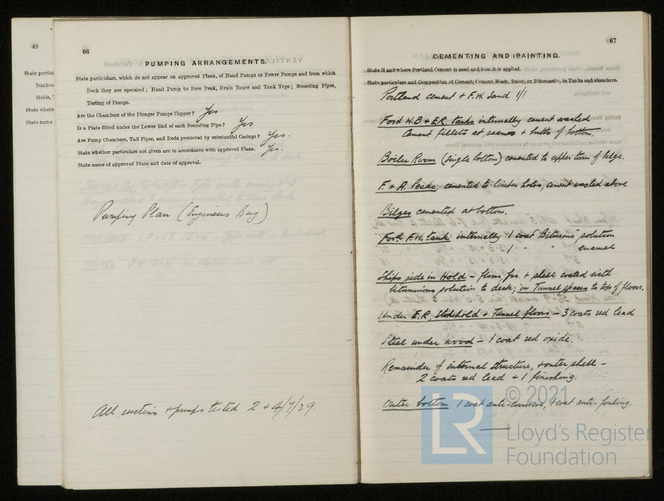 48
State particulars
Bunkers
Holds,
State whether
State name
66
PUMPING ARRANGEMENTS.
State particulars, which do not appear on approved Plans, of Hand Pumps or Power Pumps and from which
Deck they are operated; Hand Pump to Fore Peak, Drain Boxes and Tank Tops; Sounding Pipes,
Testing of Pumps.
Are the Chambers of the Plunger Pumps Copper? Yes
Is a Plate fitted under the Lower End of each Sounding Pipe? Yes
Are Pump Chambers, Tail Pipes, and Rods protected by substantial Casings? Yes.
State whether particulars not given are in accordance with approved Plans. Yes.
State name of approved Plans and date of approval.
Pumping Plan (Engineers Bag)
All suctions & pumps tested 2 & 4/7/29.
67
CEMENTING AND PAINTING.
State if and where Portland Cement is used and how it is applied.
State particulars and Composition of Cement, Cement Wash, Paint, or Bitumastic, in Tanks and elsewhere.
Portland cement & F.W. Sand 1/1
Ford W.B & E.R. tanks internally cement washed
Cement fillets at seams & butts of bottom.
Boiler Room (Single bottom) cemented to upper turn of bilge.
F. & A. Peaks, cemented to limber holes, cement washed above
Bilges cemented at bottom.
Ford F.W. tank internally 1 coat Bitumous solution
" " " 1 " " enamel
Ships side in Hold – floors, frs. & shell coated with
bituminous solution to deck; in Tunnel spaces to top of floors.
Under E.R, Stokehold & Tunnel floors – 3 coats red lead
Steel under wood – 1 coat red oxide.
Remainder of internal structure, & outer shell –
2 coats red lead & 1 finishing.
Outer bottom 1 coat anti-corrosive, 1 coat anti-fouling.
LR
© 2021
Lloyd's Register
Foundation